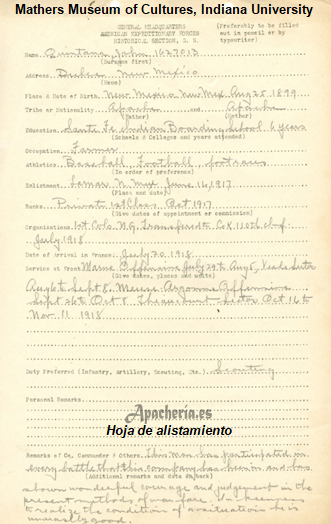 Mathers Museum of Cultures, Indiana University
GENERAL HEADQUARTERS
AMERICAN EXPEDITIONARY FORCES
HISTORICAL SECTION, G. S.
(Preferably to be filled
out in pencil or by
typewriter)
Name, Quintana John 1627013
(Surname first)
Address, Dulce New Mexico
(Home)
Place & Date of Birth, New Mexico Aug 25 1899
Tribe or Nationality Apache and Apache
(Father) (Mother)
Education, Santa Fe Indian Boarding School 6 years
(Schools & Colleges and years attended)
Occupation, Farmer
Athletics, Baseball, Football, footraces
(In order of preference)
Enlistment, N Mex June 16, 1917
(Place and date)
Ranks, Private 1st Class Oct 1917
(Give dates of appointment or commission)
Organizations, 1st Colo. N.G. Transferred to Co K. 110th Inf.
July 1918
Date of Arrival in France, July 20, 1918
Service at Front, Marne Offensive July 29th Aug 5, Vesle Sector
(Give dates, places and units)
Aug 6 to Sept 8, Meuse Argonne Offensive
Sept 26 to Oct 8. Thiaucourt Sector Oct 16 to
Nov. 11 1918
Duty Preferred (Infantry, Artillery, Scouting, Etc.) Scouting
Personal Remarks,
Apachería.es
Hoja de alistamiento
Remarks of Co. Commander & Others, This man has participated in
(Additional remarks and data on back)
every battle that this company has been in and has
shown wonderful courage and judgement in the
present methods of warfare. His keenness
to realize the conditions of a situation he is
unusually good.